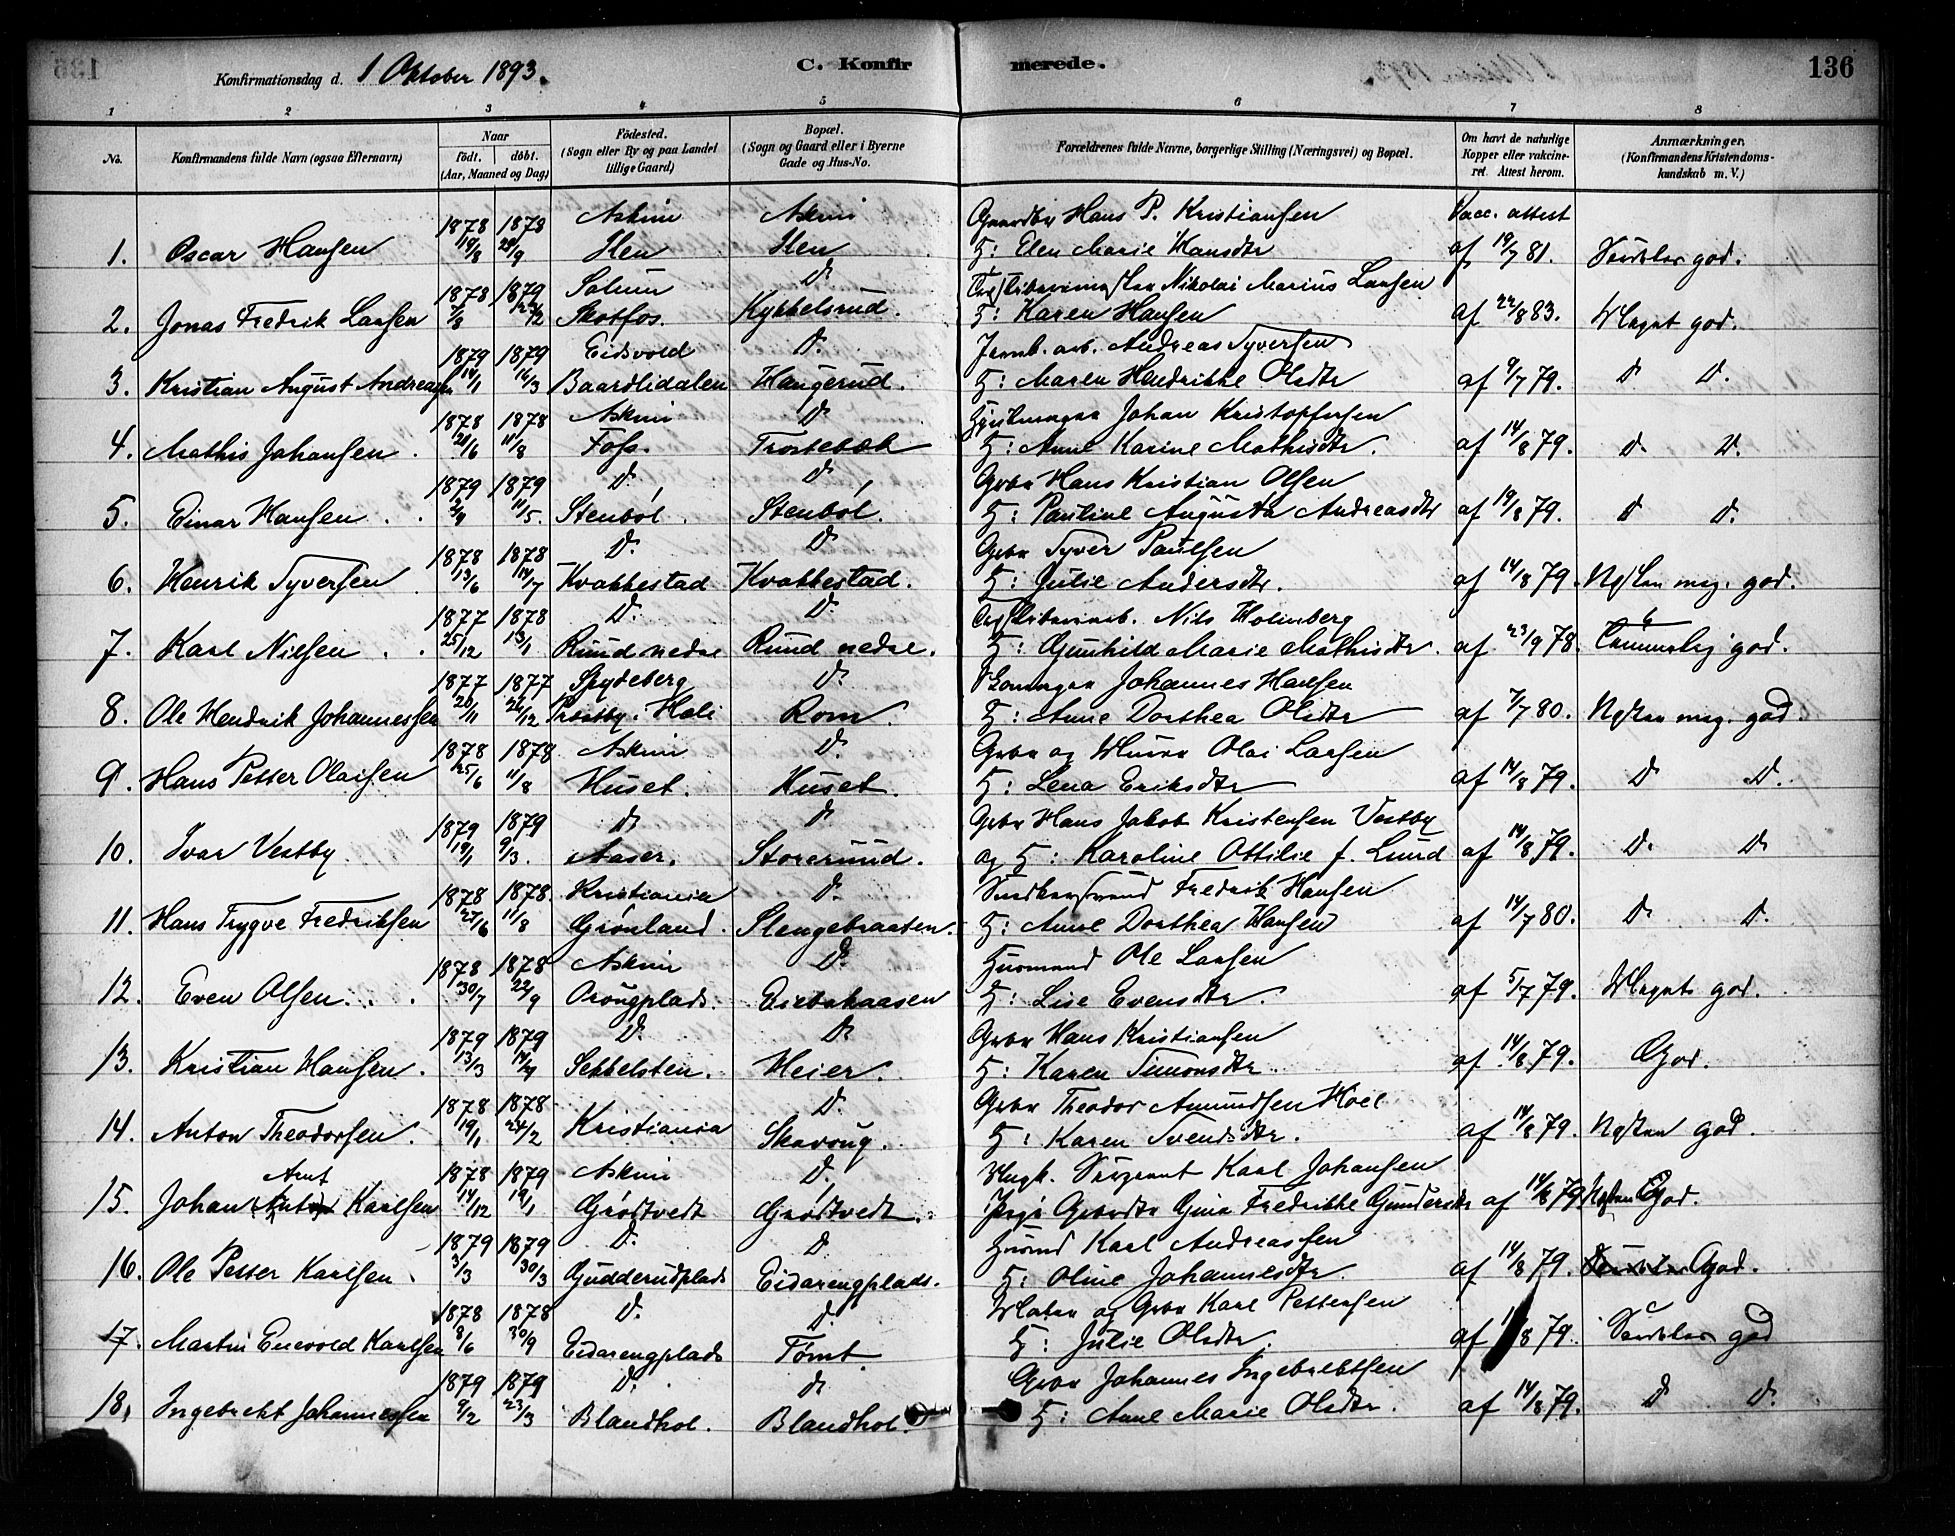 Konfirmationsdag d. 1 Oktober 1893.
C. Konfirmerede.
136
1 2 3 4 5 6 7 8
No.
Konfirmandens fulde Navn (ogsaa Efternavn)
Naar
födt. döbt.
(Aar, Maaned og Dag)
Födested.
(Sogn eller By og paa Landet
tillige Gaard)
Bopæl.
(Sogn og Gaard eller i Byerne
Gade og Hus-No.
Forældrenes fulde Navne, borgerlige Stilling (Næringsvei) og Bopæl.
Om havt de naturlige
Kopper eller vakcine-
ret. Attest herom.
Anmærkninger.
(Konfirmandens Kristendoms-
kundskab m. V.)
1878 1878 Askim Askim Gaardbr Hans P. Kristiansen Vacc. attest
1. Oscar Hansen 19/8 29/9 Hen Hen H: Elen Marie Hansdtr af 19/7 81. Særdeles god.
1878 1879 Solum D. Nikolai Marius Larsen
2. Jonas Fredrik Larsen Skotfos. Kykkelsrud. H: Karen Hansen af 22/8 83. Meget god.
1879 1879 Eidsvold D. Jernb. arb. Andreas Syversen
3. Kristian August Andreasen 14/1 16/3 Baardlidalen Haugerud. H: Maren Hendrikke Olsdtr af 9/7 79. D D.
1878 1878 Askim D Hjulmager Johan Kristoffersen
4. Mathis Johansen. 21/6 11/8 Foss. Trostebæk H: Anne Karine Mathisdtr. af 14/8 79. D. D.
1879 1879 D. D Gvbr Hans Kristian Olsen
5. Einar Hansen . . 2/4 11/5. Stenböl. Stenböl. H: Pauline Augusta Andreasdtr af 19/8 79. D D.
1878 1878 D. D Gvbr Syver Paulsen
6. Henrik Syversen . 13/6 14/7 Kvakkestad Kvakkestad. H: Julie Andersdtr. af 14/8 79. Næsten meg. god.
1877 1878 D. D. Nils Holmberg
7. Karl Nielsen . . 25/12 13/1 Ruud nedre Ruud nedre. H: Gunhild Marie Mathisdtr. af 23/9 78. god.
1877 1877 Spydeberg D. Johannes Hansen
8. Ole Hendrik Johannessen 20/11 26/12 Rom. H: Anne Dorthea Olsdtr af 7/7 80. Næsten meg. god.
1878 1878 Askim D. Gvbr og Murer Olai Larsen
9. Hans Petter Olaisen 25/6 11/8 Huset. Huset. H: Lena Eriksdtr af 14/8 79. D D.
1879 1879 D D Gvbr Hans Jakob Kristensen Vestby
10. Ivar Vestby 19/1 9/3. Aaser. Storerud. og H: Karoline Ottilie f. Lund af 14/8 79. D. D
1878 1878. Kristiania D. Fredrik Hansen
11. Hans Trygve Fredriksen 27/6 11/8 Grönland. Slengebraaten. H: Anne Dorthea Hansen af 14/7 80. D D.
1878 1878 Askim D. Husmand Ole Larsen
12. Even Olsen. . . 30/7 22/9 Oraugplads. H: Lise Evensdtr. af 5/7 79. Meget god.
1879 1879 D. D Gvbr Hans Kristiansen
13. Kristian Hansen. 13/3 14/4 Sekkelsten. Heier. H: Karen Simonsdtr. af 14/8 79. God.
1878 1878 D. Gvbr Theodor Amundsen Hoel
14. Anton Theodorsen. 19/1 24/2 Kristiania Skaroug. H: Karen Svendsdtr. af 14/8 79. Næsten god.
Arnt 1878 1879 Askim D Sergeant Karl Johansen
15. Johan Anton Karlsen 14/12 19/1 Grötvedt Grötvedt. Pige Gina Fredrikke Gundersdtr af 14/8 79 Næsten God.
1879 1879 D. D Husmd Karl Andreassen
16. Ole Petter Karlsen. 3/3 30/3 Gudderudplads Eidarengplads. H: Oline Johannesdtr. af 14/8 79. Særdeles God.
1878 1878 D. D. Maler og Gvbr Karl Pettersen
17. Martin Enevold Karlsen 8/6 Eidarengplads Tömt. H: Julie Olsdtr. af 8 79. Særdeles god
1879 1879 D. D Gvbr Johannes Ingebrektsen
18. Ingebrekt Johannessen 9/2 23/3 Blandhol. Blandhol. H: Anne Marie Olsdtr. af 14/8 79. D D.